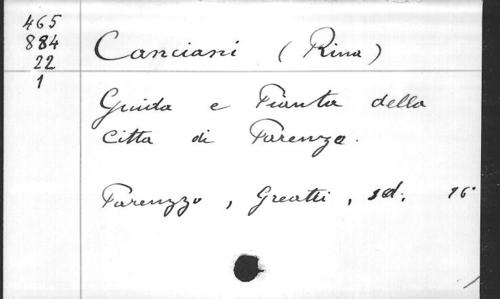 465
884
22
1
Canciani (Rina)
Guida e Pianta della
Citta di Parenzo.
Parenzo, Greatti, sd; 16°